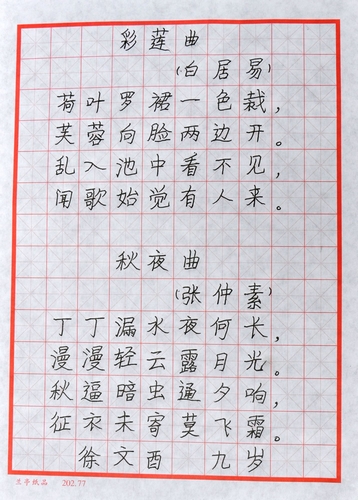 彩莲曲
(白居易)
荷叶罗裙一色裁，
芙蓉向脸两边开。
乱入池中看不见，
闻歌始觉有人来。
秋夜曲
(张仲素)
丁丁漏水夜何长，
漫漫轻云露月光。
秋逼暗虫通夕响，
征衣未寄莫飞霜。
徐文酉 九岁
兰亭纸品 202.77